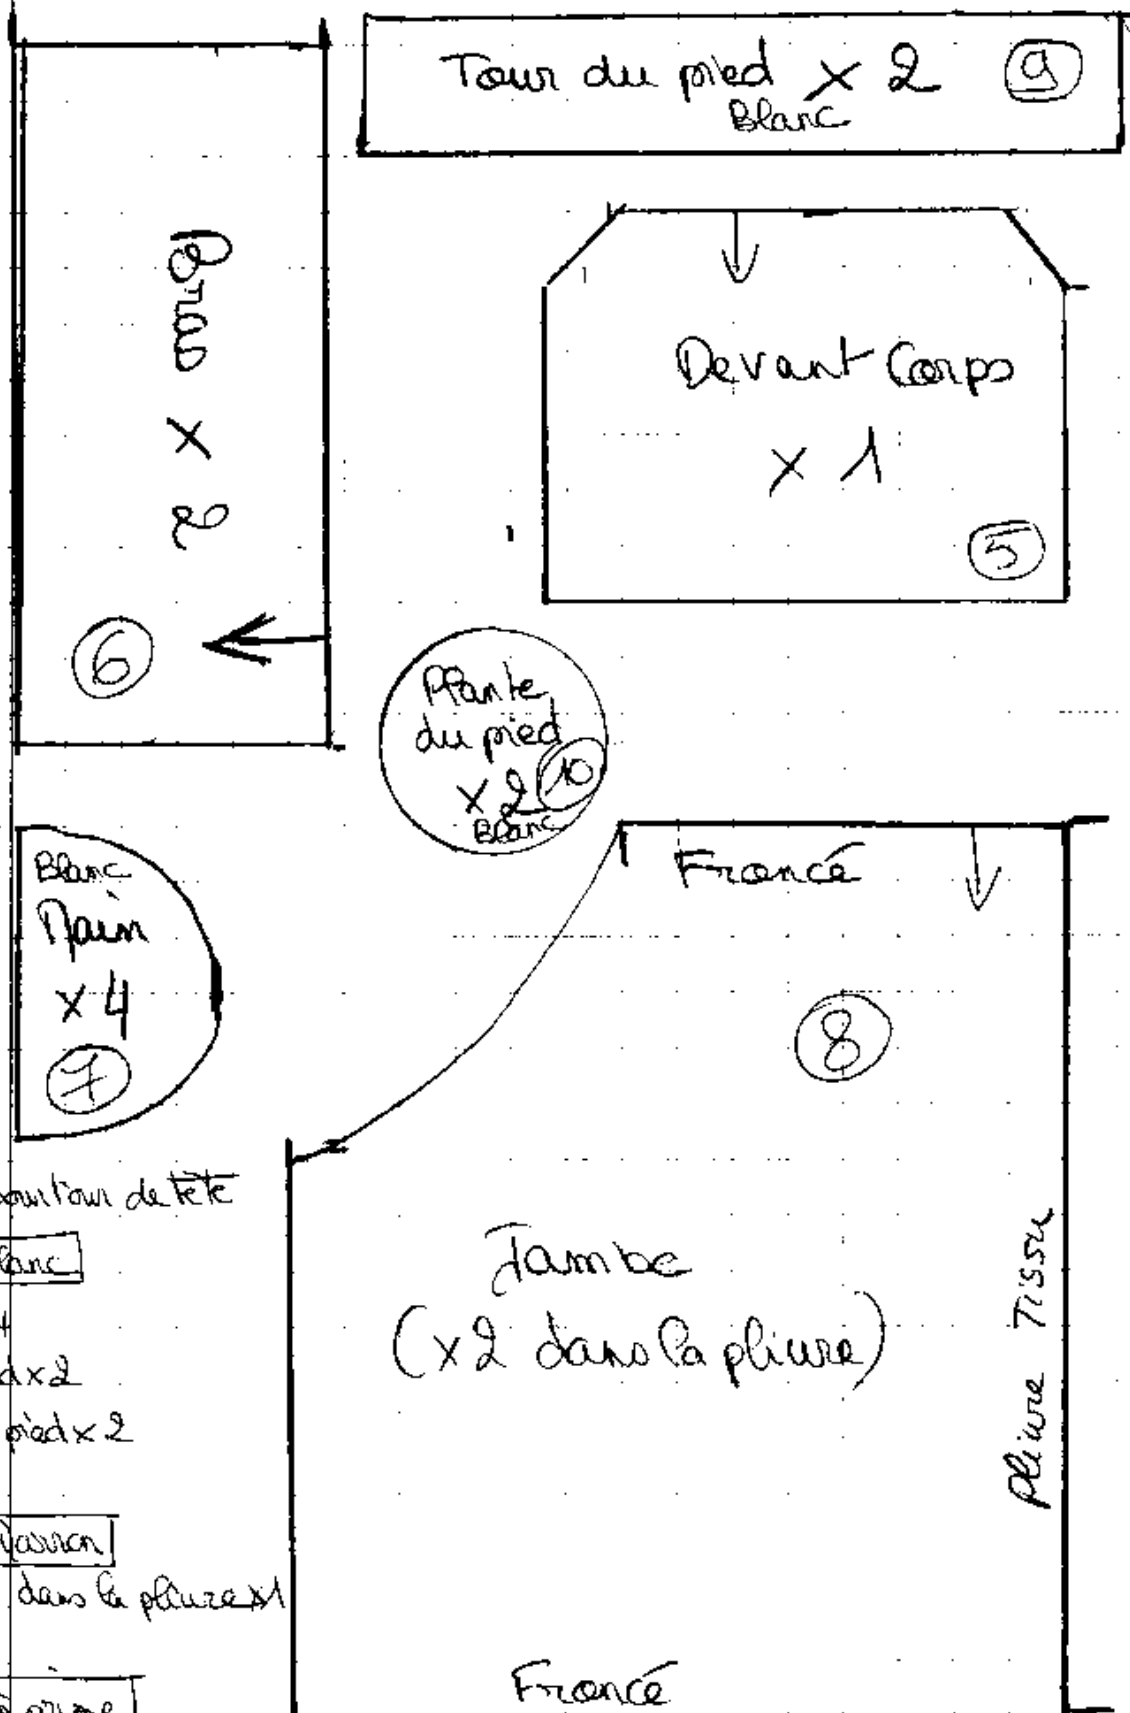 Tour du pied x 2 9
Blanc
Bras x 2
6
Devant Corps
x 1
5
Plante
du pied
x 2 10
Blanc
Blanc
Main
x 4
7
Froncé
8
Jambe
(x2 dans la pliure)
Pliure Tissu
Froncé
de tête
x2
pied x 2
dans la pliure x1